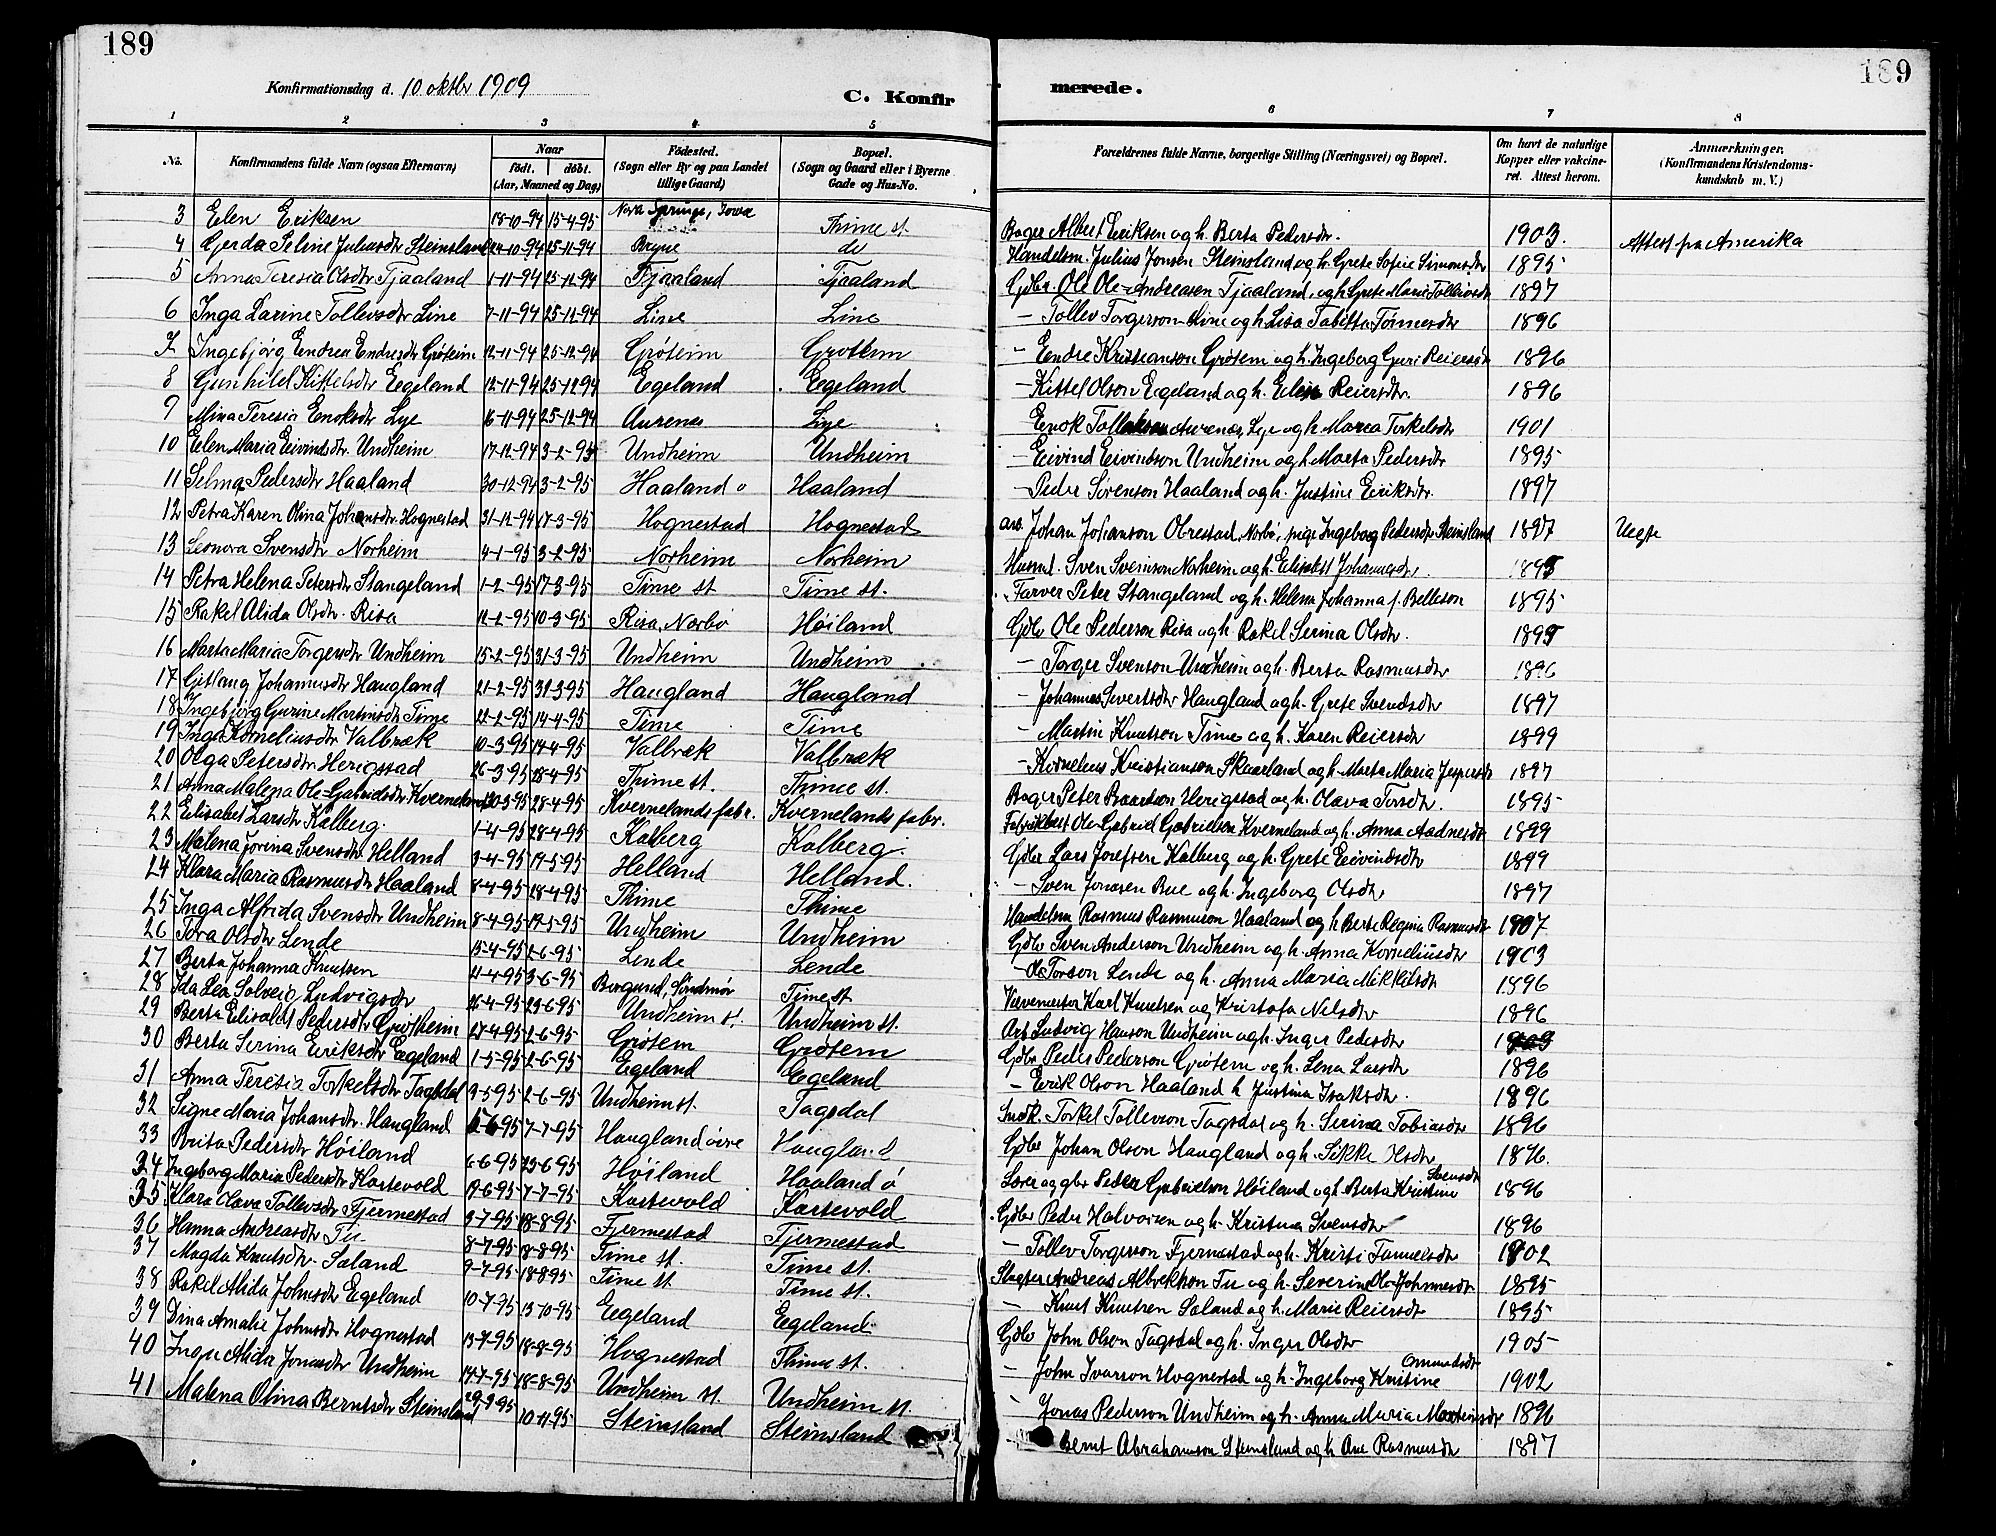 189
189
Konfirmationsdag d. 10 oktbr 1909
C. Konfirmerede.
1 2 3 4 5 6 7 8
No. Konfirmandens fulde Navn (ogsaa Efternavn) Naar födt. döbt. (Aar, Maaned og Dag) Födested. (Sogn eller By og paa Landet tillige Gaard) Bopæl. (Sogn og Gaard eller i Byerne Gade og Hus-No. Forældrenes fulde Navne, borgerlige Stilling (Næringsvei) og Bopæl. Om havt de naturlige Kopper eller vakcineret. Attest herom. Anmærkninger. (Konfirmandens Kristendomskundskab m. V.)
3 Elen Eriksen 18-10-94 15-4-95 Nora Springs, Iowa Thime st. Bager Albert Eriksen og h. Berta Pedersdtr. 1903. Attest fra Amerika
4 Gerda Seline Juliusdtr Steinsland 24-10-94 25-11-94 Bryne do Handelsm. Julius Jonsen Steinsland og h. Grete Sofie Simonsdtr 1895
5 Anna Teresia Olsdtr Tjaaland 1-11-94 25-12-94 Tjaaland Tjaaland Gdbr Ole Ole-Andreasen Tjaaland, og h Grete Marie Tollevsdtr 1897
6 Inga Larine Tollevsdtr Line 7-11-94 25-12-94 Line Line - Tollev Torgerson Line og h Lisa Tabitta Tönnesdtr 1896
7 Ingebjörg Endrea Endresdtr Gröteim 12-11-94 25-12-94 Gröteim Grotem - Endre Kristianson Grötem og h. Ingeborg Guri Reiersdtr 1896
8 Gunhild Kittelsdtr Egeland 12-11-94 25-12-94 Egeland Egeland - Kittel Olson Egeland og h. Elen Reiersdtr. 1896
9 Mina Teresia Enoksdtr Lye 16-11-94 25-12-94 Aurenes Lye - Enok Tollakson Aurenes, Lye og h. Maria Torkelsdtr 1901
10 Elen Maria Eivindsdtr Undheim 17-12-94 3-2-95 Undheim Undheim - Eivind Eivindson Undheim og h Marta Pedersdtr 1895
11 Selma Pedersdtr Haaland 30-12-94 3-2-95 Haaland ö Haaland - Peder Sörenson Haaland og h. Justine Eriksdtr. 1897
12 Petra Karen Olina Johansdtr. Hognestad 31-12-94 17-3-95 Hognestad Hognestad arb. Johan Johanson Obrestad, Norbö, pige Ingeborg Pedersdtr Steinsland 1897 Uegte
13 Leonora Svensdtr Norheim 4-1-95 3-2-95 Norheim Norheim Husmd. Sven Svenson Norheim og h. Elisabet Johannesdtr. 1895
14 Petra Helena Petersdtr Stangeland 1-2-95 17-3-95 Time st Time st. Farver Peter Stangeland og h. Helena Johanna f. Belleson 1895
15 Rakel Alida Olsdtr. Risa 12-2-95 10-3-95 Risa, Norbö Höiland Gdbr Ole Pederson Risa og h. Rakel Serina Olsdtr. 1895
16 Marta Maria Torgersdtr Undheim 15-2-95 31-3-95 Undheim Undheim - Torger Svenson Undheim og h. Berta Rasmusdtr 1896
17 Gitlaug Johannesdtr Haugland 21-2-95 31-3-95 Haugland Haugland - Johannes Severtsdtr Haugland og h. Grete Svendsdtr 1897
18 Ingebjörg Gurine Martinsdtr Time 22-2-95 14-4-95 Time Time - Martin Knutson Time og h. Karen Reiersdtr 1899
19 Inga Korneliusdtr Valbræk 10-3-95 14-4-95 Valbræk Valbræk - Kornelius Kristianson Skaarland og h Marta Maria Jespersdtr 1897
20 Olga Petersdtr Herigstad 26-3-95 18-4-95 Thime st. Thime st. Bager Peter Baardsen Herigstad og h. Olava Torsdtr. 1895
21 Anna Malena Ole-Gabrielsdtr Kverneland 20-3-95 28-4-95 Kvernelands fabr. Kvernelands fabr. Ole Gabriel Gabrielsen Kverneland og h. Anna Aadnesdtr 1899
22 Elisabet Larsdtr Kalberg. 1-4-95 28-4-95 Kalberg Kalberg. Gdbr Lars Josefsen Kalberg og h. Grete Eivindsdtr 1899
23 Malena Jorina Svensdtr Helland 3-4-95 19-5-95 Helland Helland. - Sven Jonasen Bue og h. Ingeborg Olsdtr 1897
24 Klara Maria Rasmusdtr Haaland 8-4-95 28-4-95 Thime Thime Handelsm Rasmus Rasmuson Haaland og h Berte Regina Rasmusdtr 1907
25 Inga Alfrida Svensdtr Undheim 8-4-95 19-5-95 Undheim Undheim Gdbr Sven Anderson Undheim og h. Anna Korneliusdtr 1903
26 Tora Olsdtr Lende 15-4-95 2-6-95 Lende Lende - Ole Torson Lende og h. Anna Maria Mikkelsdtr 1896
27 Berta Johanna Knutsen 21-4-95 3-6-95 Borgund, Söndmör Time st Vævemester Karl Knutsen og Kristofa Nilsdtr 1896
28 Ida Lea Solveig Ludvigsdtr 26-4-95 23-6-95 Undheim st. Undheim st. Arb Ludvig Hanson Undheim og h. Inger Pedersdtr
29 Berta Elisabet Pedersdtr Grötheim 27-4-95 2-6-95 Grötem Grötem Gdbr Peder Pederson Grötem og h. Lena Larsdtr 1896
30 Berta Serina Eriksdtr Egeland 1-5-95 2-6-95 Egeland Egeland - Erik Olson Haaland h Justina Isaksdtr. 1896
31 Anna Teresia Torkelsdtr Tagsdal 3-5-95 2-6-95 Undheim st. Tagsdal Torkel Tollevson Tagsdal og h. Serina Tobiasdtr 1896
32 Signe Maria Johansdtr. Haugland 5-6-95 7-7-95 Haugland övre Haugland Gdbr Johan Olson Haugland og h. Sikke Olsdtr 1896.
33 Brita Pedersdtr Höiland 6-6-95 23-6-95 Höiland Haaland ö Lærer og gbr Peder Gabrielson Höiland og h Berta Kristine Svensdtr 1896
34 Ingeborg Maria Pedersdtr Kartevold 19-6-95 7-7-95 Kartevold Kartevold Gdbr Peder Halvorsen og h. Kristina Svensdtr 1896
35 Klara Olava Tollevsdtr Fjermestad 3-7-95 18-8-95 Fjermestad Fjermestad - Tollev Torgerson Fjermestad og h. Kristi Samuelsdtr 1902
36 Hanna Andreasdtr Tu 8-7-95 18-8-95 Time st. Time st. Slagter Andreas Albrektson Tu og h. Severine Ole-Johnnesdtr 1895
37 Magda Knutsdtr. Saland 9-7-95 18-8 95 Time st Time st. - Knut Knutsen Saland og h. Marie Reiersdtr 1895
38 Rakel Alida Johnsdtr Egeland 10-7-95 13-10-95 Egeland Egeland Gdbr John Olson Tagsdal og h. Inger Olsdtr 1905
39 Dina Amalie Johnsdtr Hognestad 13-7-95 18-8-95 Hognestad Thime st. - John Ivarson Hognestad og h. Ingeborg Kristine Ommundsdtr 1902
40 Inga Alida Jonasdtr Undheim 14-7-95 18-8-95 Undheim st. Undheim st. - Jonas Pederson Undheim og h. Anna Maria Martinsdtr 1896
41 Malena Olina Berntsdtr Steinsland 29-9-95 10-11-95 Steinsland Steinsland - Bernt Abrahamson Steinsland og h Ane Rasmusdtr 1897